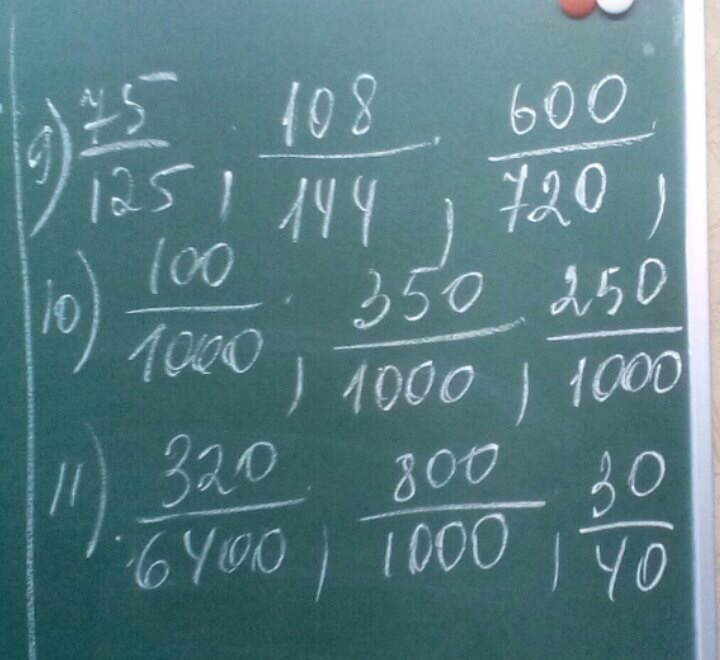 9) 75/125, 108/144, 600/720,
10) 100/1000, 350/1000, 250/1000
11) 320/6400, 800/1000, 30/40